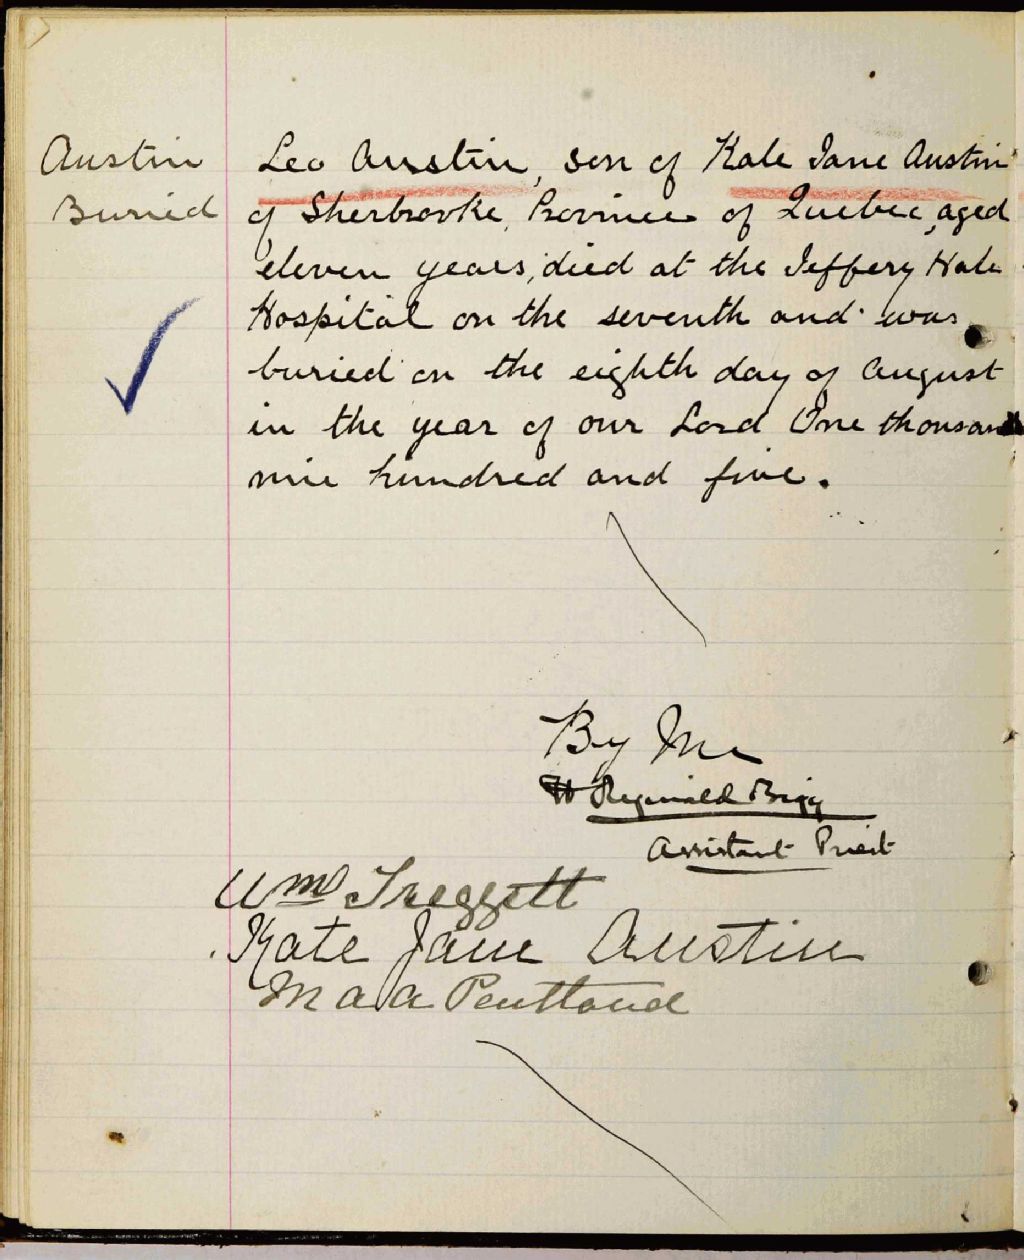 Austin
Buried
Leo Austin, son of Kate Jane Austin
of Sherbrooke, Province of Quebec, aged
eleven years, died at the Jeffery Hale
Hospital on the seventh and was
buried on the eighth day of August
in the year of our Lord One thousand
nine hundred and five.
By Me
Reginald Brigg
Assistant Priest
Wm Treggett
Kate Jane Austin
M a a Pentland